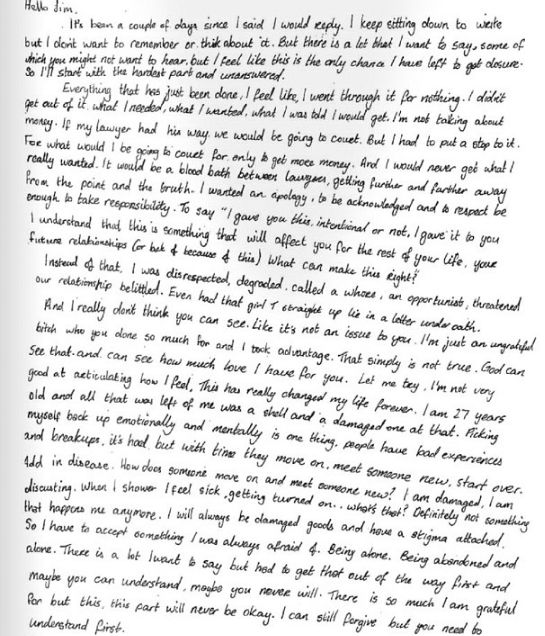 Hello Jim.
It's been a couple of days since I said I would reply. I keep sitting down to write
but I don't want to remember or think about it. But there is a lot that I want to say, some of
which you might not want to hear, but I feel like this is the only chance I have left to get closure.
So I'll start with the hardest part and unanswered.
Everything that has just been done, I feel like, I went through it for nothing. I didn't
get out of it what I needed, what I wanted, what I was told I would get. I'm not talking about
money. If my lawyer had his way we would be going to court. But I had to put a stop to it.
For what would I be going to court for only to get more money. And I would never get what I
really wanted. It would be a blood bath between lawyers, getting further and further away
from the point and the truth. I wanted an apology, to be acknowledged and to respect be
enough to take responsibility. To say "I gave you this, intentional or not, I gave it to you
I understand that this is something that will affect you for the rest of your life, your
future relationships (or lack of because of this) What can make this right?"
Instead of that, I was disrespected, degraded, called a whore, an opportunist, threatened
our relationship belittled. Even had that girl T straight up lie in a letter under oath.
And I really dont think you can see. Like it's not an issue to you. I'm just an ungrateful
bitch who you done so much for and I took advantage. That simply is not true. God can
see that and can see how much love I have for you. Let me try, I'm not very
good at articulating how I feel. This has really changed my life forever. I am 27 years
old and all that was left of me was a shell and a damaged one at that. Picking
myself back up emotionally and mentally is one thing, people have bad experiences
and breakups, it's hard, but with time they move on, meet someone new, start over.
Add in disease. How does someone move on and meet someone new? I am damaged, I am
discusting. When I shower I feel sick, getting turned on.. what's that? Definitely not something
that happens me anymore. I will always be damaged goods and have a stigma attached.
So I have to accept something I was always afraid of. Being alone. Being abandoned and
alone. There is a lot I want to say but had to get that out of the way first and
maybe you can understand, maybe you never will. There is so much I am grateful
for but this, this part will never be okay. I can still forgive but you need to
understand first.